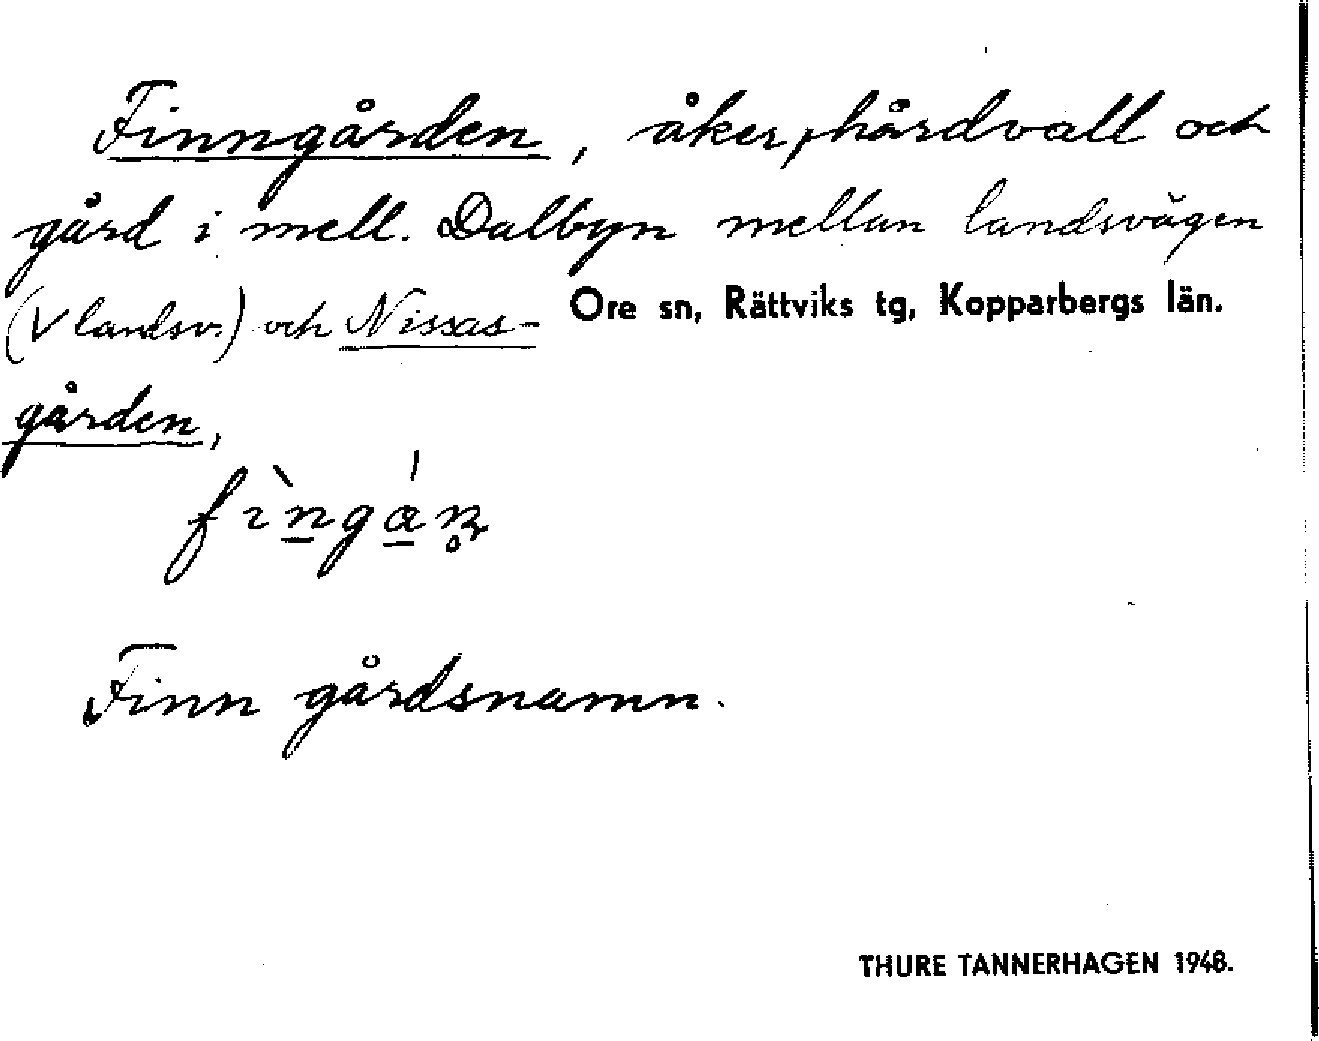 Finngården, åker, hårdvall och
gård i mell. Dalbyn mellan landsvägen
(V landsv.) och Nissas-
Ore sn, Rättviks tg, Kopparbergs län.
gården,
Finn gårdsnamn.
THURE TANNERHAGEN 1948.